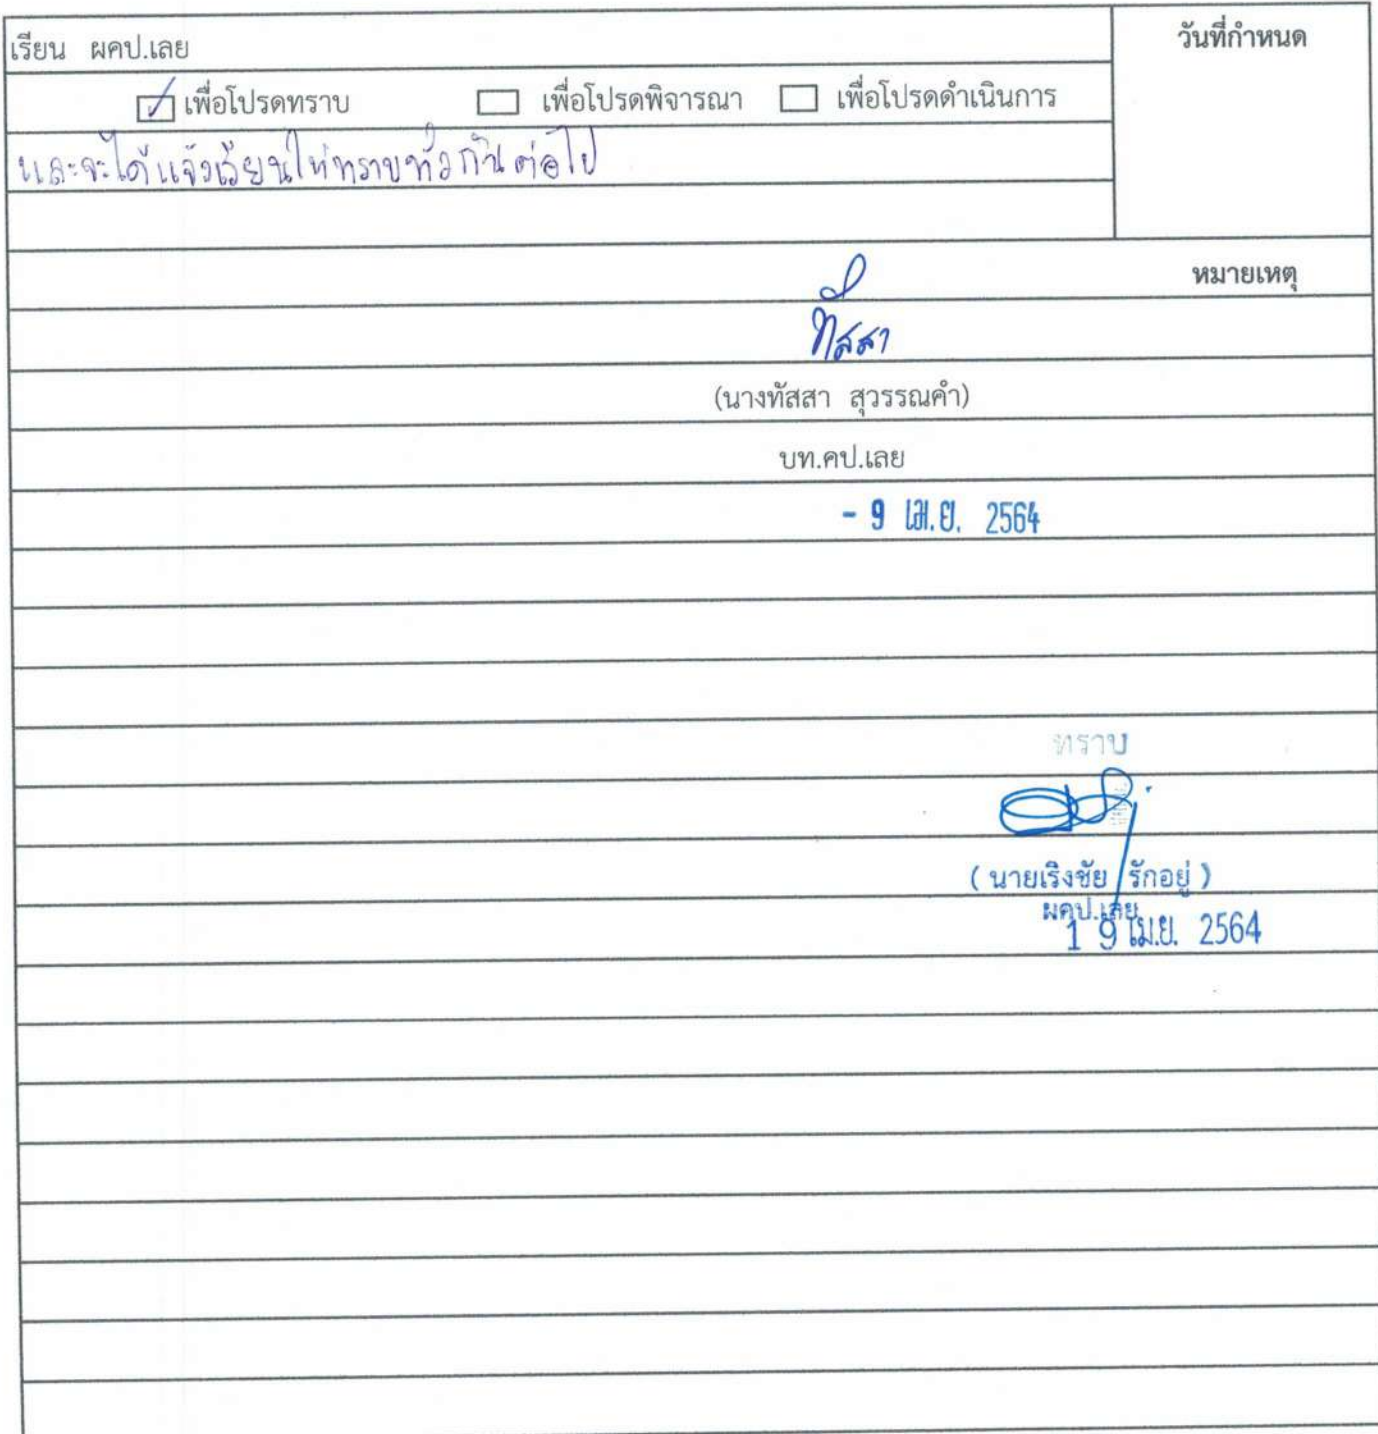 เรียน ผคป.เลย
วันที่กำหนด
เพื่อโปรดทราบ เพื่อโปรดพิจารณา เพื่อโปรดดำเนินการ
และจะได้แจ้งเวียนให้ทราบทั่วกันต่อไป
หมายเหตุ
ทัสสา
(นางทัสสา สุวรรณคำ)
บท.คป.เลย
- 9 เม.ย. 2564
ทราบ
( นายเริงชัย รักอยู่ )
ผคป.เลย
1 9 เม.ย. 2564